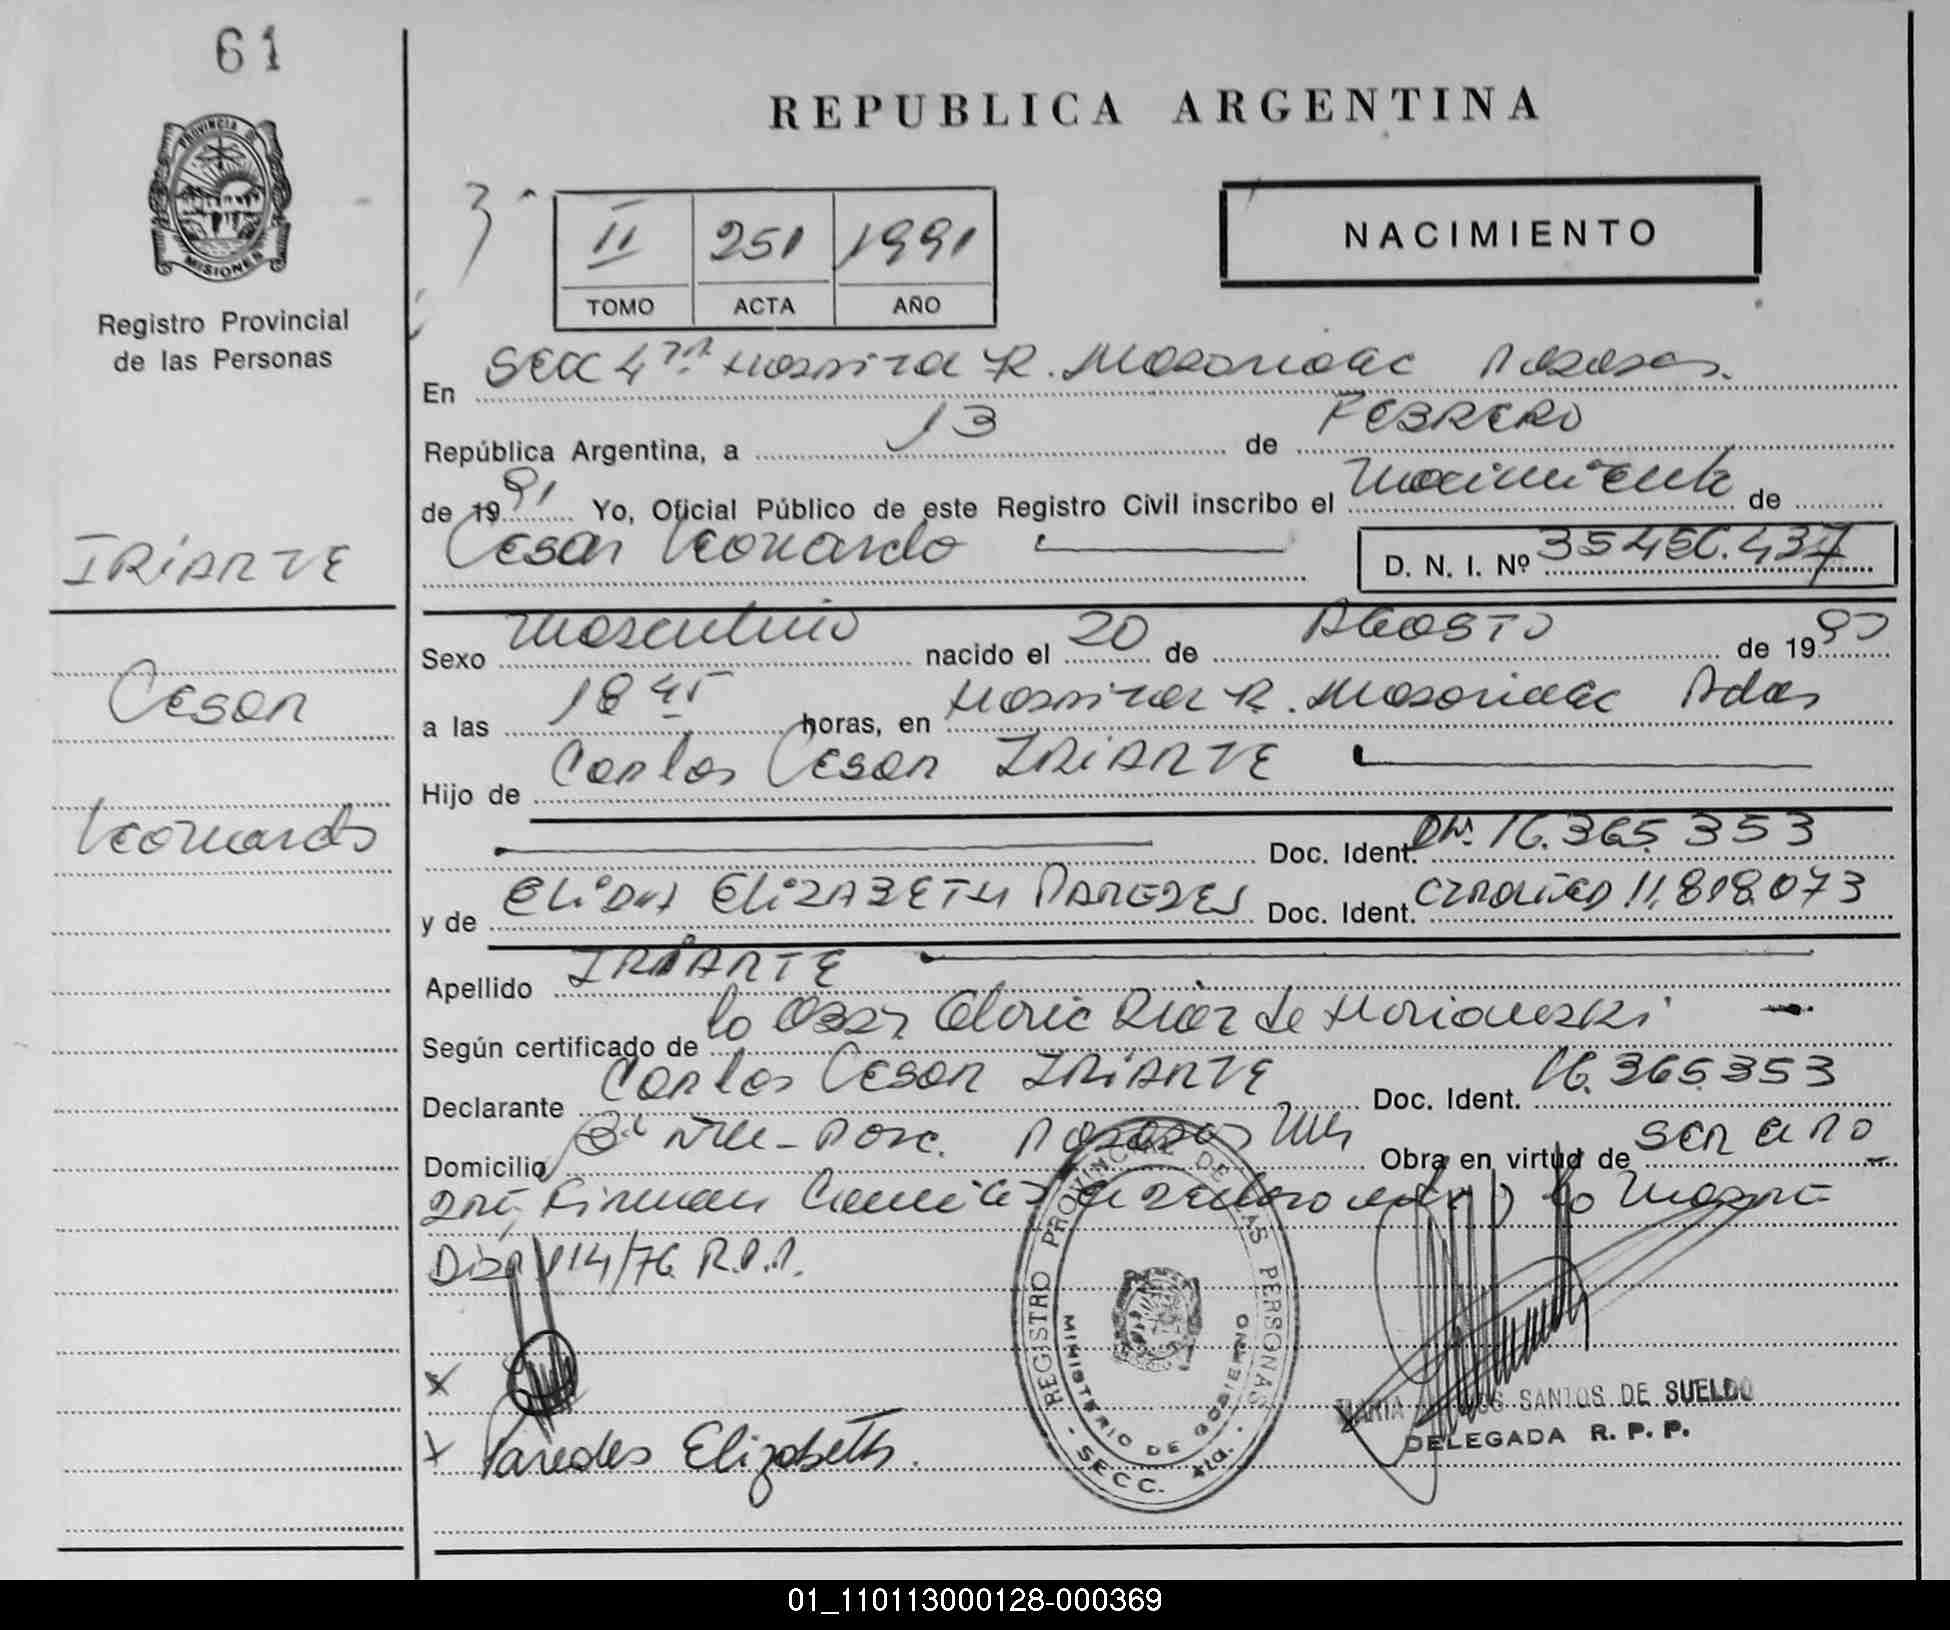 61
REPUBLICA ARGENTINA
PROVINCIA DE
MISIONES
Registro Provincial
de las Personas
II 251 1991
TOMO ACTA AÑO
NACIMIENTO
En Secc 4ta Hospital R. Madariaga Posadas.
República Argentina, a 13 de FEBRERO
de 1991 Yo, Oficial Público de este Registro Civil inscribo el nacimiento de
Cesar Leonardo
D. N. I. Nº 35.456.437
IRIARTE
Cesar
Leonardo
Sexo masculino nacido el 20 de AGOSTO de 1990
a las 18 45 horas, en Hospital R. Madariaga Pdas
Hijo de Carlos Cesar IRIARTE
Doc. Ident. DNI. 16.365.353
y de ELIDA ELIZABETH PAREDES Doc. Ident. 11.818.073
Apellido IRIARTE
Según certificado de la Obst Gloria Diaz de
Declarante Carlos Cesar IRIARTE Doc. Ident. 16.365.353
Domicilio Posadas Mnes Obra en virtud de ser el PA
DRE, Firman el declarante y la madre
Disp 114/76 R.P.P.
x
x Paredes Elizabeth.
REGISTRO PROVINCIAL DE LAS PERSONAS
MINISTERIO DE GOBIERNO
- SECC. 4ta. -
MARIA SANTOS DE SUELDO
DELEGADA R. P. P.
01_110113000128-000369